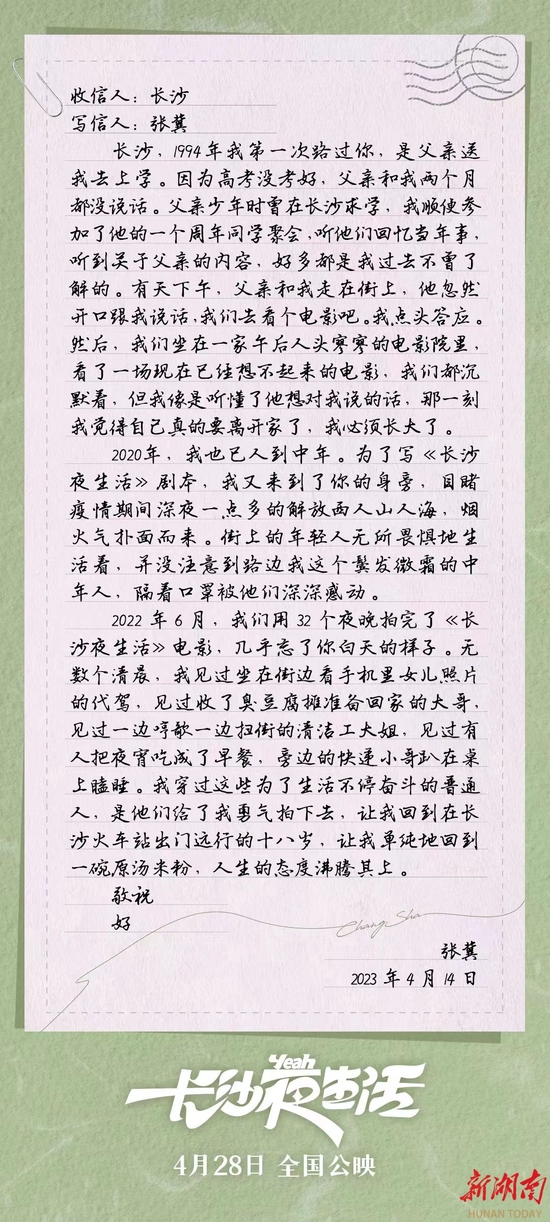 收信人：长沙
写信人：张冀
长沙，1994年我第一次路过你，是父亲送
我去上学。因为高考没考好，父亲和我两个月
都没说话。父亲少年时曾在长沙求学，我顺便参
加了他的一个周年同学聚会，听他们回忆当年事，
听到关于父亲的内容，好多都是我过去不曾了
解的。有天下午，父亲和我走在街上，他忽然
开口跟我说话，我们去看个电影吧。我点头答应。
然后，我们坐在一家午后人头寥寥的电影院里，
看了一场现在已经想不起来的电影，我们都沉
默着，但我像是听懂了他想对我说的话，那一刻
我觉得自己真的要离开家了，我必须长大了。
2020年，我也已人到中年。为了写《长沙
夜生活》剧本，我又来到了你的身旁，目睹
疫情期间深夜一点多的解放西人山人海，烟
火气扑面而来。街上的年轻人无所畏惧地生
活着，并没注意到路边我这个鬓发微霜的中
年人，隔着口罩被他们深深感动。
2022年6月，我们用32个夜晚拍完了《长
沙夜生活》电影，几乎忘了你白天的样子。无
数个清晨，我见过坐在街边看手机里女儿照片
的代驾，见过收了臭豆腐摊准备回家的大哥，
见过一边哼歌一边扫街的清洁工大姐，见过有
人把夜宵吃成了早餐，旁边的快递小哥趴在桌
上瞌睡。我穿过这些为了生活不停奋斗的普通
人，是他们给了我勇气拍下去，让我回到在长
沙火车站出门远行的十八岁，让我单纯地回到
一碗原汤米粉，人生的态度沸腾其上。
敬祝
好
Chang Sha
张冀
2023年4月14日
Yeah
长沙夜生活
4月28日 全国公映
新湖南
HUNAN TODAY